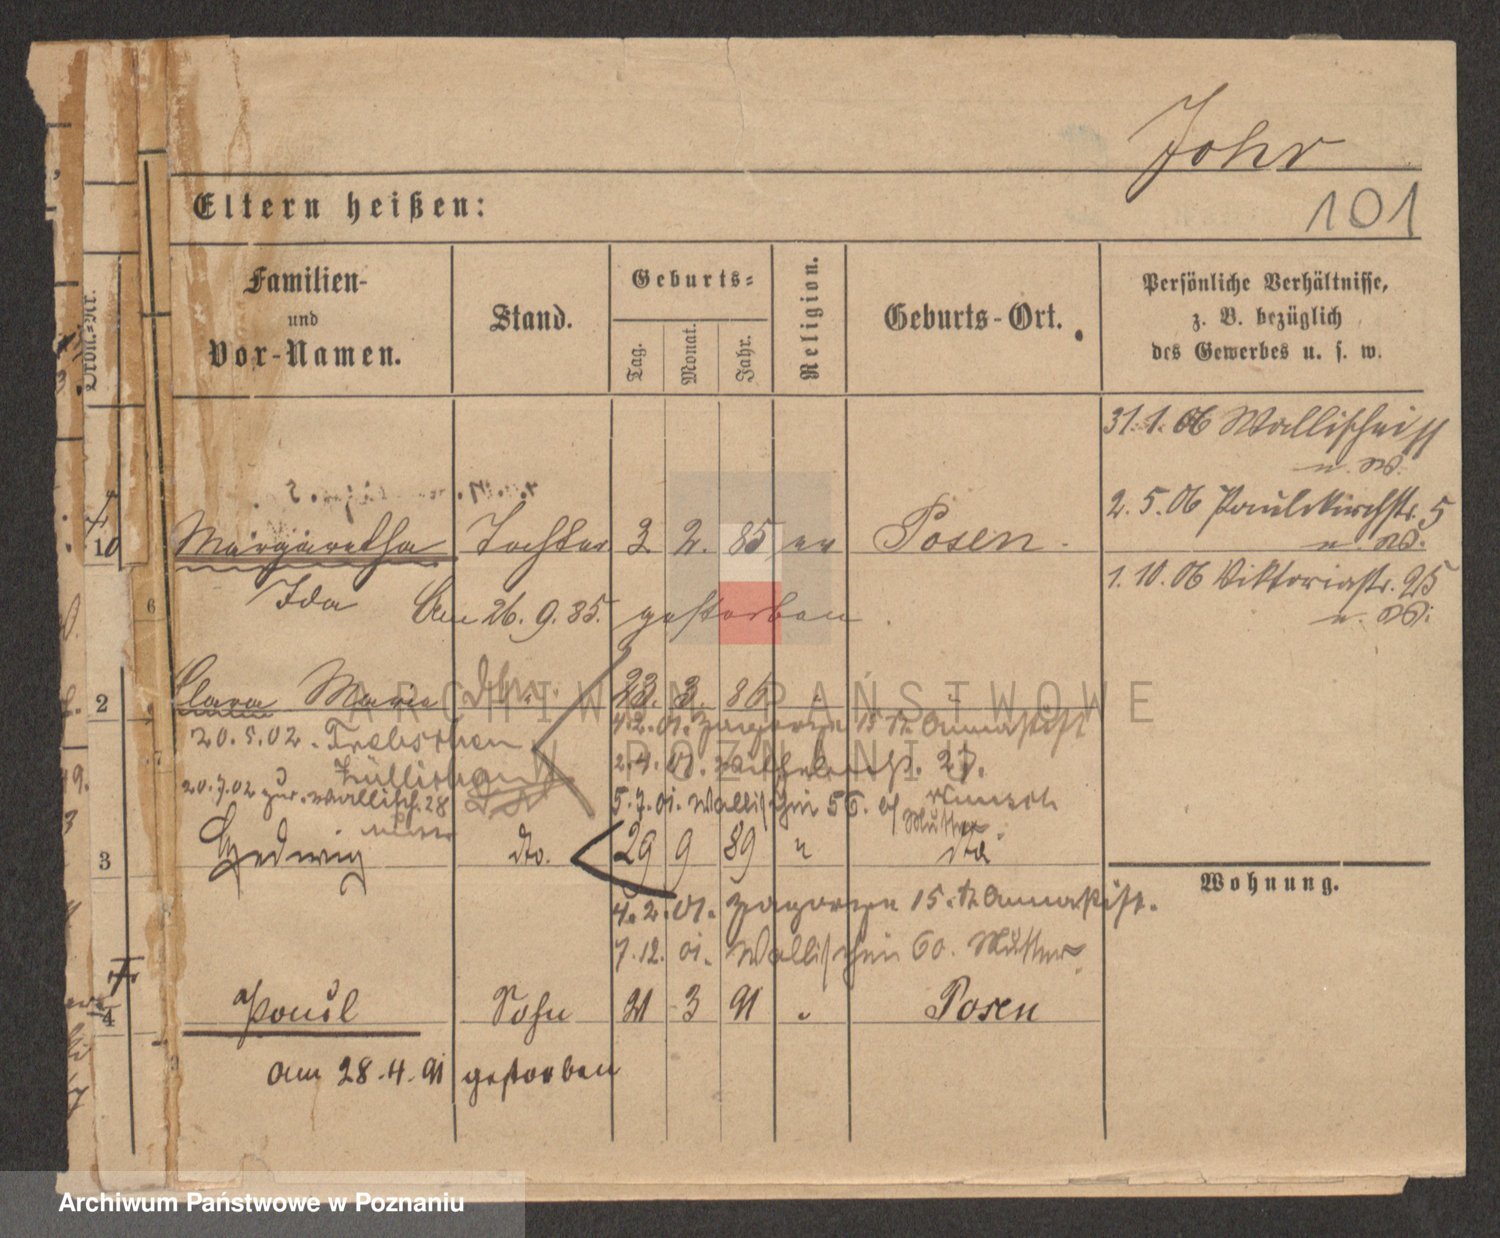 Johr
101
Eltern heißen:
Ordn.=Nr.
Familien-
und
Vor-Namen.
Stand.
Geburts=
Tag.
Monat.
Jahr.
Religion.
Geburts-Ort.
Persönliche Verhältnisse,
z. B. bezüglich
des Gewerbes u. s. w.
31. 1. 06 Wallischei
2. 5. 06 Paulikirchstr. 5
1. 10. 06 Viktoriastr. 25
Margaretha Tochter 3 2. 85 ev Posen
Ida Am 26. 9. 85. gestorben
6
2 Clara Marie dto. 23. 3. 86
4. 2. 01. Zagorze 15. Annastift
20. 5. 02. Trebschen
Züllichau
2. 4. 01. 27.
20. 7. 02 zur. Wallisch. 28
5. 7. 01. Wallischei 56. Mutter
3 Hedwig dto. 29 9 89 " dto
Wohnung.
4. 2. 01. Zagorze 15. Annastift.
7. 12. 01. Wallischei 60. Mutter.
4 Paul Sohn 21 3 91 " Posen
am 28. 4. 91 gestorben
ARCHIWUM PAŃSTWOWE
W POZNANIU
Archiwum Państwowe w Poznaniu